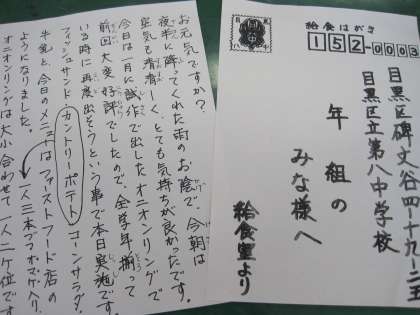 お元気ですか?
夜半に降ってくれた雨のお陰で、今朝は
空気も清清ーく、とても気持ちが良かったです。
今日は一月に試作で出したオニオンリングで
前回大変好評でしたので、全学年揃って
いる時に再度出そうという事で本日実施です。
フィッシュサンド・カントリーポテト・コーンサラダ・
牛乳と、今日のメニューはファストフード店の
ようになりました。 一人三本プチトマト入り。
オニオンリングは大小合わせて一人二ケ位です
給食はがき
152-0003
目黒区碑文谷四-十九-二五
目黒区立第八中学校
年組の
みな様へ
給食室より